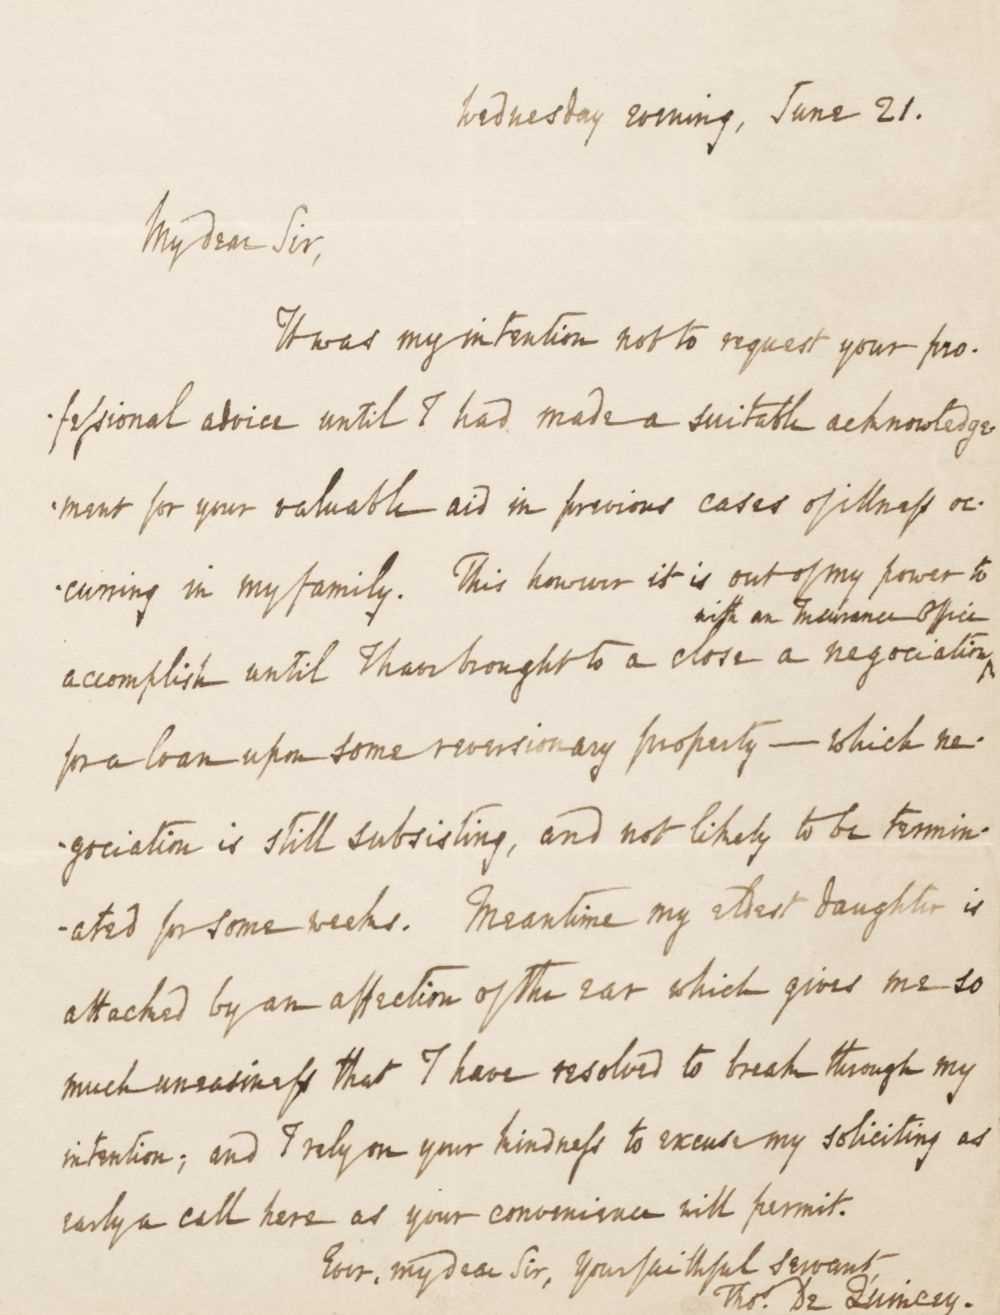 Wednesday evening, June 21.
My dear Sir,
It was my intention not to request your pro-
-fessional advice until I had made a suitable acknowledge-
-ment for your valuable aid in previous cases of illness oc-
-curring in my family. This however it is out of my power to
with an Insurance Office
accomplish until I have brought to a close a negociation^
for a loan upon some reversionary property — which ne-
-gociation is still subsisting, and not likely to be termin-
-ated for some weeks. Meantime my eldest daughter is
attacked by an affection of the ear which gives me so
much uneasiness that I have resolved to break through my
intention; and I rely on your kindness to excuse my soliciting as
early a call here as your convenience will permit.
Ever, my dear Sir, your faithful servant,
Thos. De Quincey.